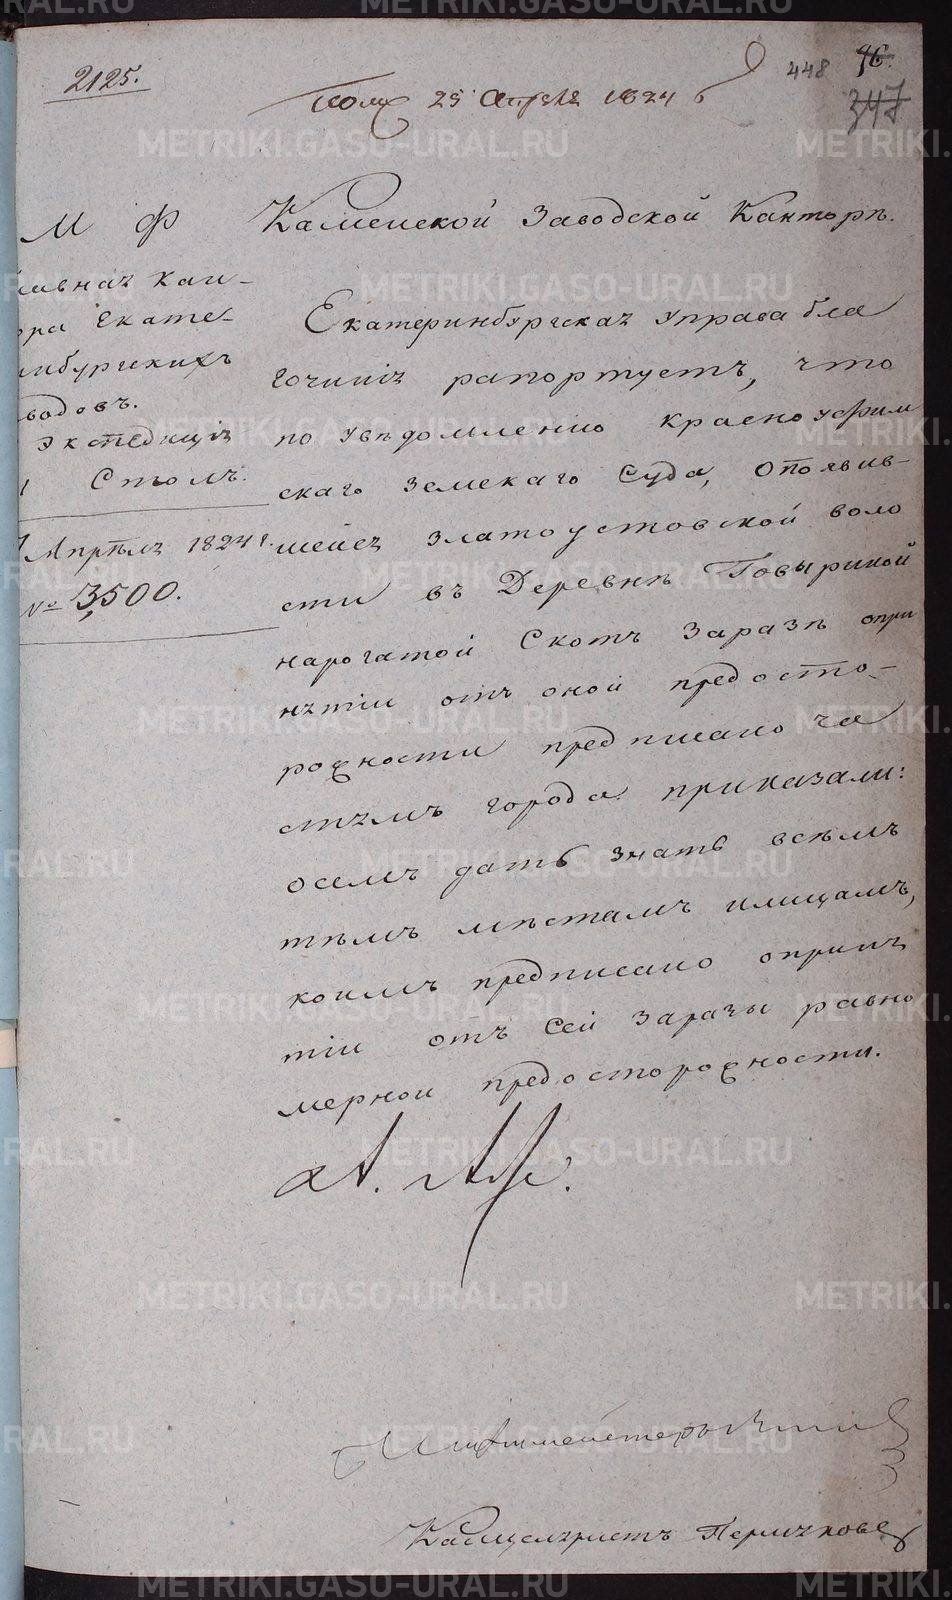 2125.
448
96.
347
Полу 25 Апреля 1824
М Ф
лавная Кан-
ора Екате-
инбургскихъ
водовъ.
Экспедиція
1 Столъ.
Апрѣля 1824 г.
№ 3,500.
Каменской Заводской Канторѣ.
Екатеринбургская Управа бла
гочинія рапортуетъ, что
по увѣдомленію Красноуфим
скаго Земскаго Суда, Опоявив-
шейся Златоустовской воло
сти въ Деревнѣ Говыриной
нарогатой Скотъ Заразѣ опри
нятіи отъ оной предосто-
рожности предписано ча
стямъ города приказали:
осемъ дать знать всѣмъ
тѣмъ мѣстамъ илицамъ,
коимъ предписано оприня
тіи отъ Сей Заразы равно
мерной предосторожности.
Канцеляристъ Пермяковъ
METRIKI.GASO-URAL.RU